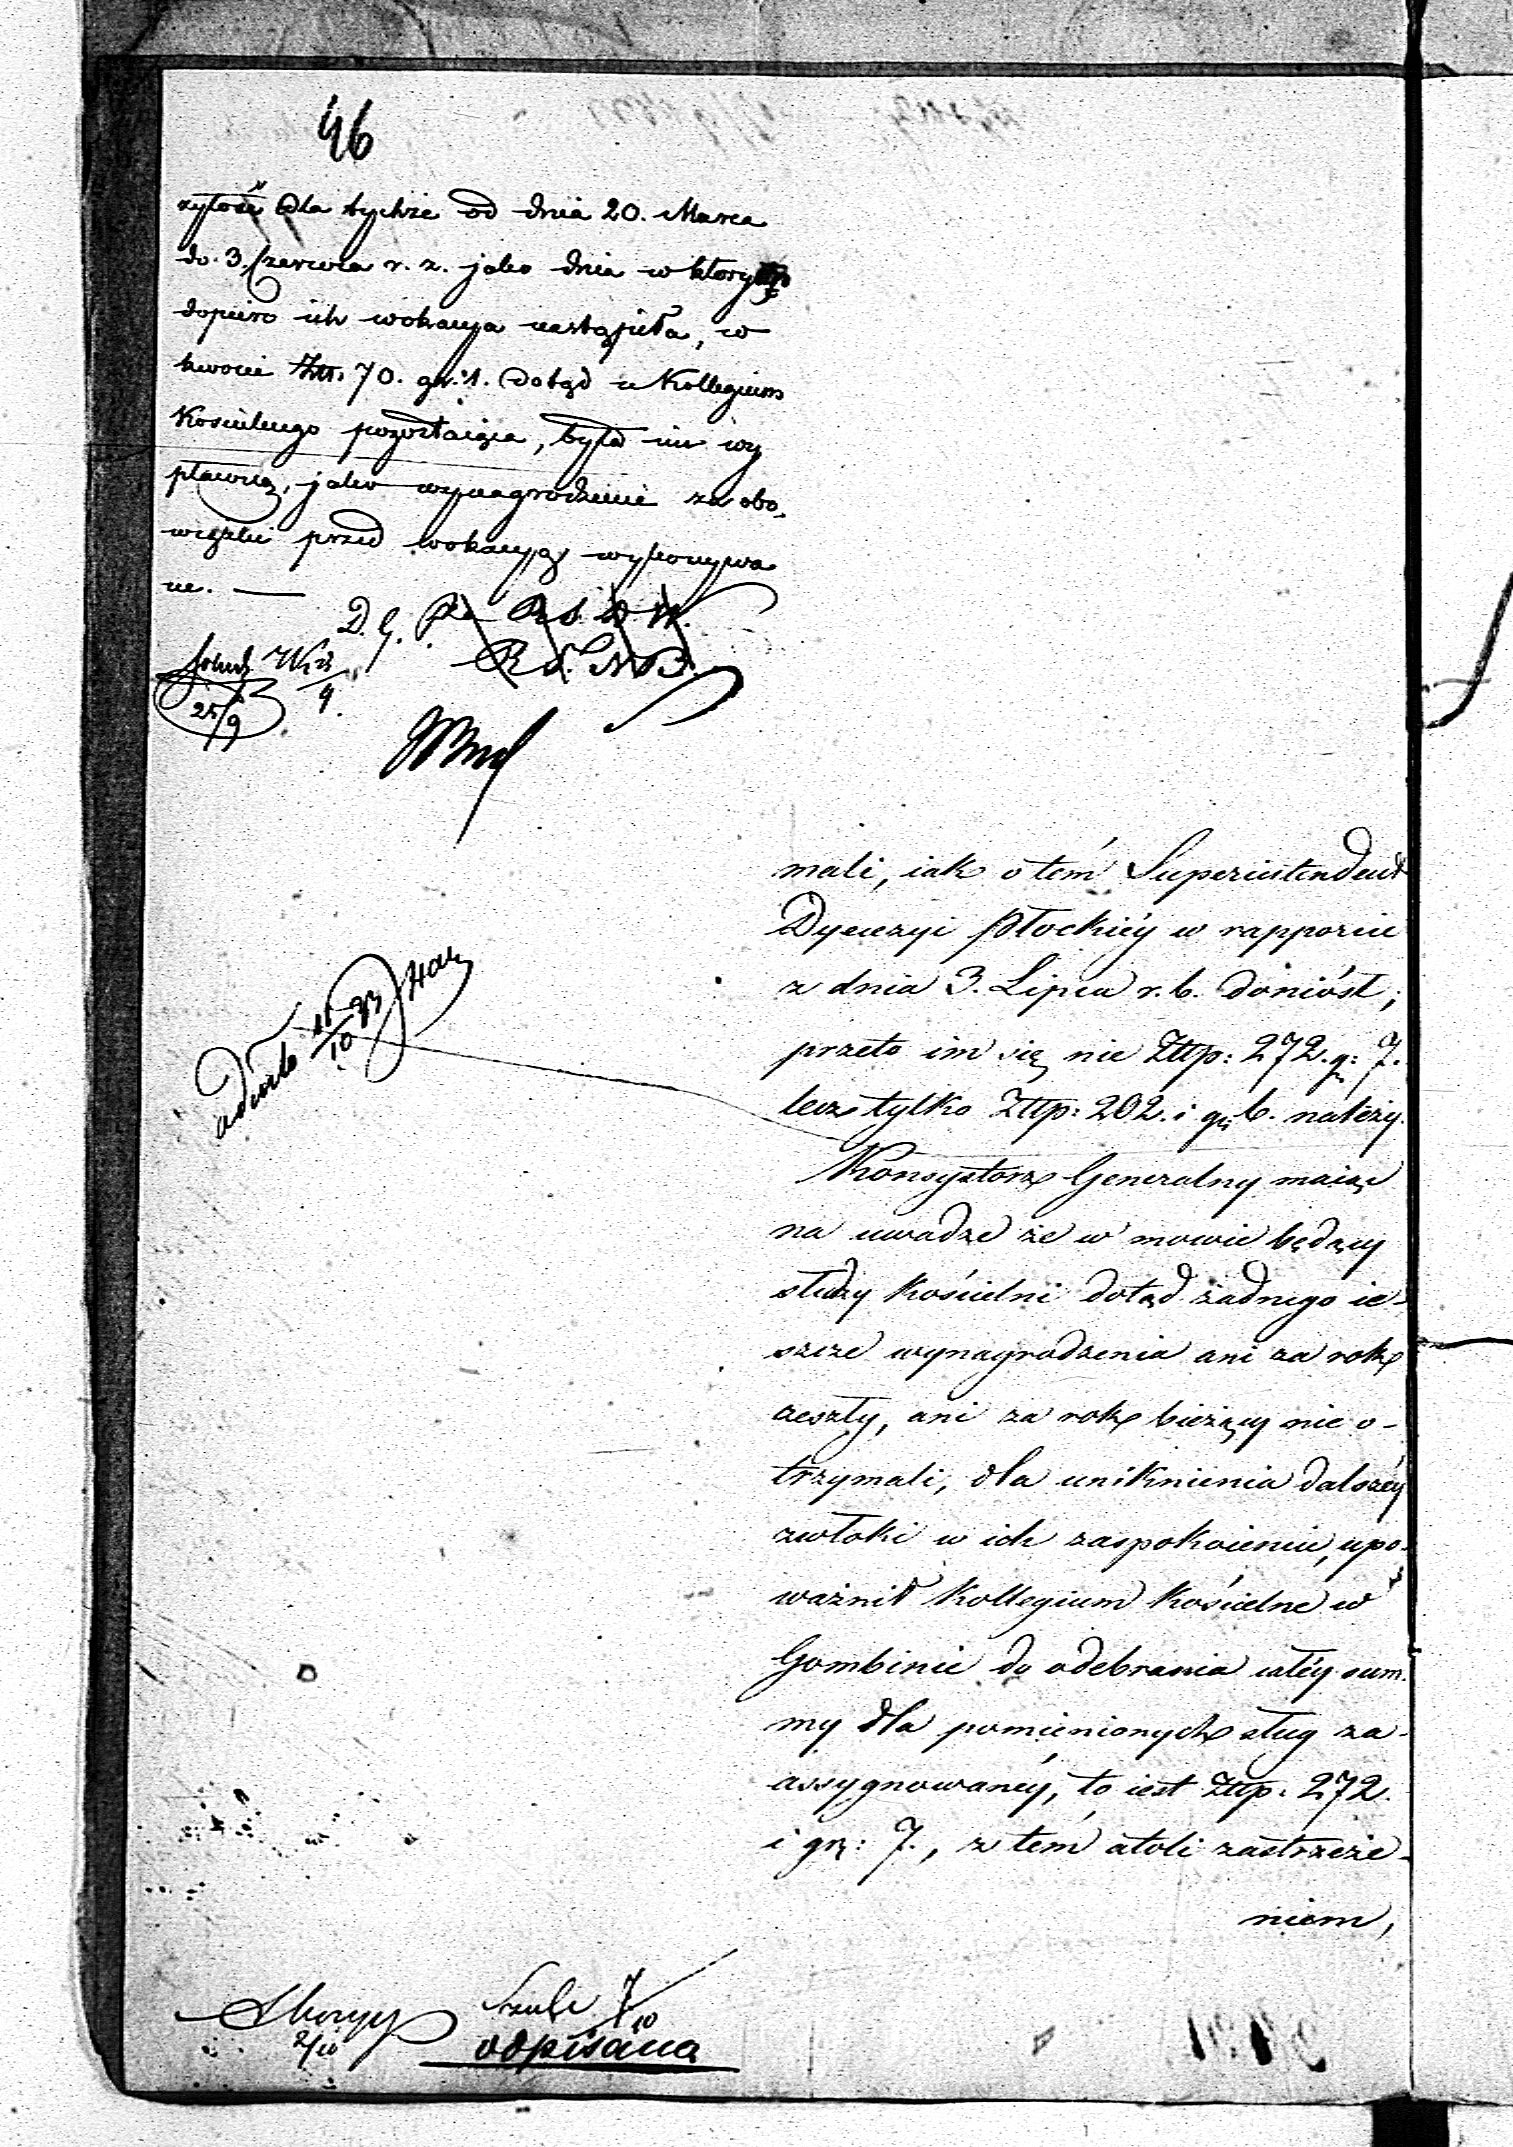 46
żytość dla tychże od dnia 20. Marca
do 3. Czerwca r. z. jako dnia w którym
dopiero ich wokacya nastąpiła, w
kwocie Złt. 70. gr. 1. dotąd u Kollegium
Kościelnego pozostaiąca, była im wy
płaconą, jako wynagrodzenie za obo,
wiązki przed wokacyą wykonywa
ne. —
D. G.
25/9
mali, iak o tém Superintendent
Dyecezyi Płockiéy w rapporcie
z dnia 3. Lipca r. b. doniósł;
przeto im się nie Złtp: 272. gr: 7.
lecz tylko Złtp: 202. i gr 6. należy.
Konsystorz Generalny maiąc
na uwadze że w mowie będący
słudzy kościelni dotąd żadnego ie-
szcze wynagrodzenia ani za rok
zeszły, ani za rok bieżący nie o-
trzymali, dla uniknienia dalszéy
zwłoki w ich zaspokoieniu, upo-
ważnił Kollegium Kościelne w
Gombinie do odebrania całéy sum-
my dla pomienionych sług za-
assygnowanéy, to iest Złtp. 272.
i gr: 7., z tém atoli zastrzeże-
niem,
2/10
7/10
odpisana